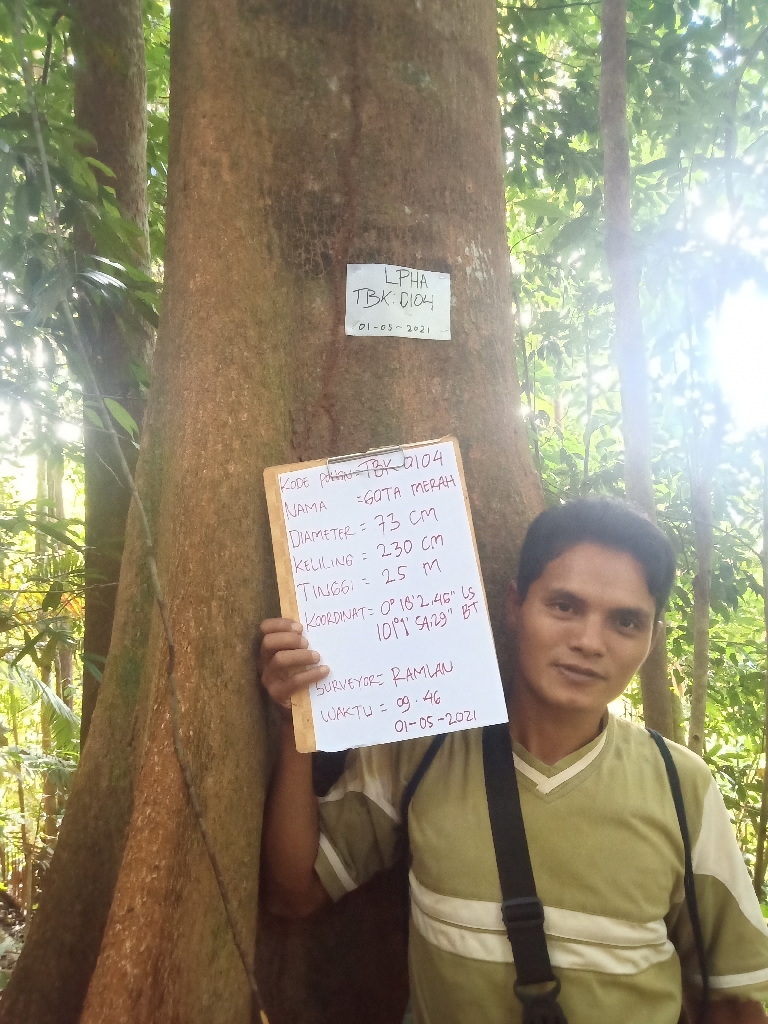 LPHA
TBK: 0104
01-05-2021
KODE POHON = TBK 0104
NAMA = GOTA MERAH
DIAMETER = 73 CM
KELILING = 230 CM
TINGGI = 25 M
KOORDINAT = 0° 18' 2.46" LS
101°1' 54.29" BT
SURVEYOR = RAMLAN
WAKTU = 09.46
01-05-2021